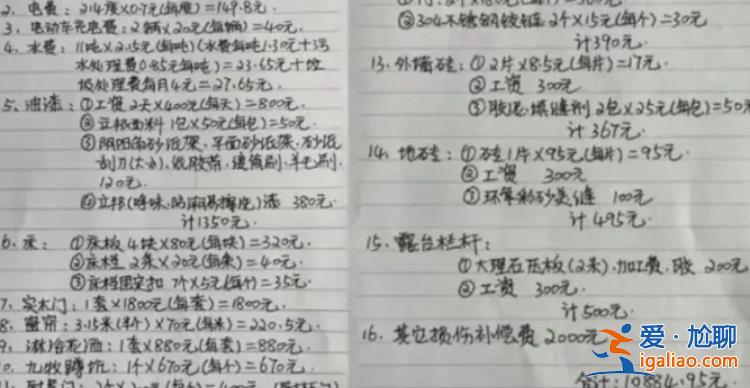 2、电费：214度×0.7元(每度)=149.8元.
3、电动车充电费：2辆×20元(每辆)=40元.
4、水费：11吨×2.15元(每吨)(水费每吨1.30元+污
水处理费0.85元每吨)=23.65元+垃
圾处理费每月4元=27.65元.
5、油漆：①工资 2天×400元(每天)=800元.
②立邦面料 1包×50元(每包)=50元.
③阴阳角砂纸架、平面砂纸架、砂纸
刮刀(大、小)、纸胶带、滚筒刷、羊毛刷.
120元.
④立邦(净味、防潮易擦洗)漆 380元.
计1350元.
6、床：①床板 4块×80元(每块)=320元.
②床档 2条×20元(每条)=40元.
③床档固定扣 7个×5元(每个)=35元.
7、实木门：1套×1800元(每套)=1800元.
8、窗帘：3.15米(半个)×70元(每米)=220.5元.
9、淋浴花洒：1套×880元(每套)=880元.
10、九牧蹲坑：1个×670元(每个)=670元.
②304不锈钢铰链 2个×15元(每个)=30元
计390元.
13、外墙砖：①2片×8.5元(每片)=17元.
②工资 300元
③胶泥、填缝剂 2包×25元(每包)=50元
计367元.
14、地砖：①砖1片×95元(每片)=95元.
②工资 300元
③环氧彩砂美缝 100元
计495元.
15、露台栏杆：
①大理石压板(2米)、加工费、胶 200元
②工资 300元.
计500元.
16、其它损伤补偿费 2000元
合计：10884.95元
爱·尬聊
igaliao.com